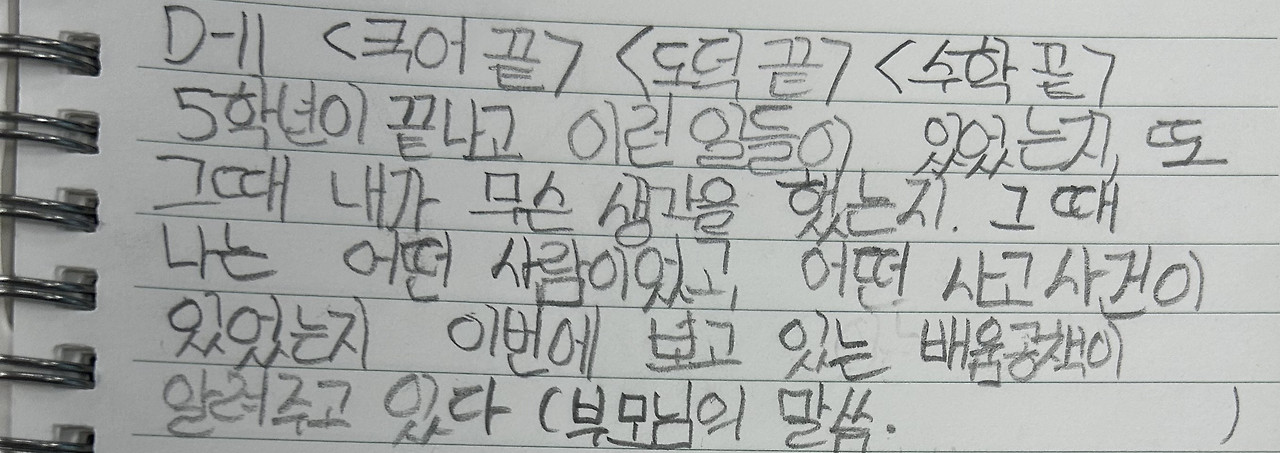 D-11 <국어 끝> <도덕 끝> <수학 끝>
5학년이 끝나고 이런 일들이 있었는지, 또
그때 내가 무슨 생각을 했는지. 그 때
나는 어떤 사람이었고, 어떤 사고 사건이
있었는지 이번에 보고 있는 배움공책이
알려주고 있다 (부모님의 말씀. )